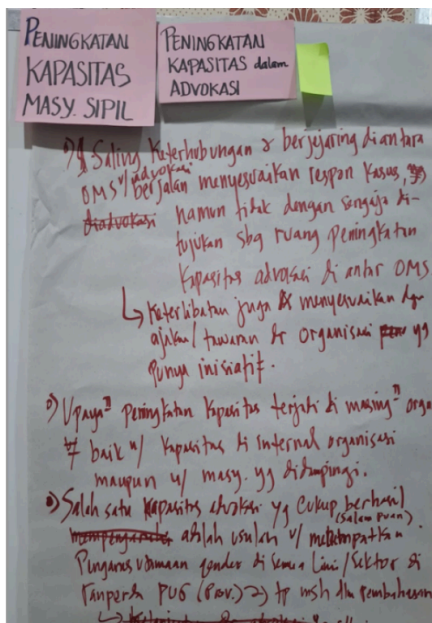 PENINGKATAN
KAPASITAS
MASY. SIPIL
PENINGKATAN
KAPASITAS dalam
ADVOKASI
Saling Keterhubungan & berjejaring diantara
OMS u/ advokasi berjalan menyesuaikan respon kasus,
diadvokasi namun tidak dengan sengaja di-
tujukan sbg ruang peningkatan
kapasitas advokasi di antar OMS
↳ Keterlibatan juga menyesuaikan dgn
ajakan/tawaran dr organisasi yg
punya inisiatif.
Upaya" peningkatan kapasitas terjadi di masing" orga
baik u/ kapasitas di internal organisasi
maupun u/ masy. yg didampingi.
Salah satu kapasitas advokasi yg cukup berhasil
(Salam Puan)
adalah usulan u/ menempatkan
Pengarus utamaan gender di semua Lini/Sektor di
Ranperda PUG (Prov.) → tp msh dlm pembahasan